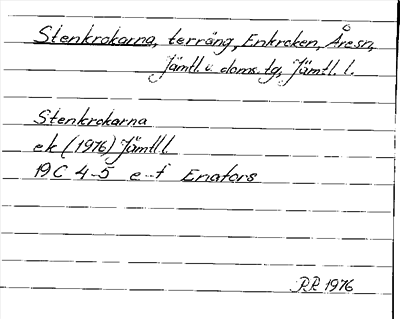 Stenkrokarna, terräng, Enkroken, Åresn,
Jämtl. v. doms. tg, Jämtl. l.
Stenkrokarna
ek (1976) Jämtl l.
19C 4-5 e-f Enafors
P.R. 1976